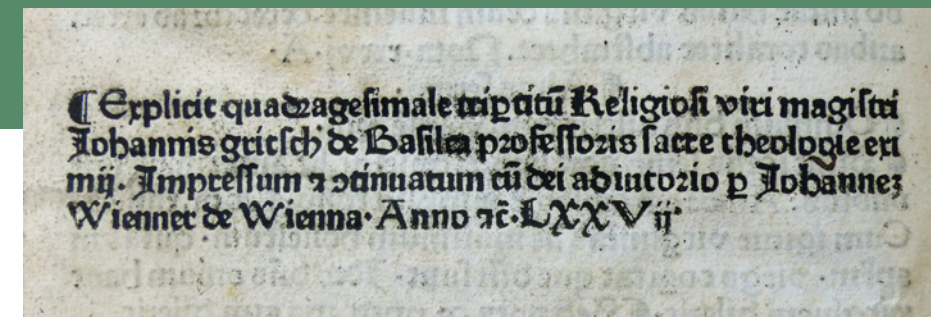 ¶ Explicit quadragesimale tripͥtitū Religiosi viri magistri
Johannis gritsch de Basilea professoris sacre theologie exi
mij. Impressum ⁊ ꝯtinuatum cū dei adiutorio ꝑ Johannez
Wienner de Wienna. Anno ⁊c̄. LXXVij.